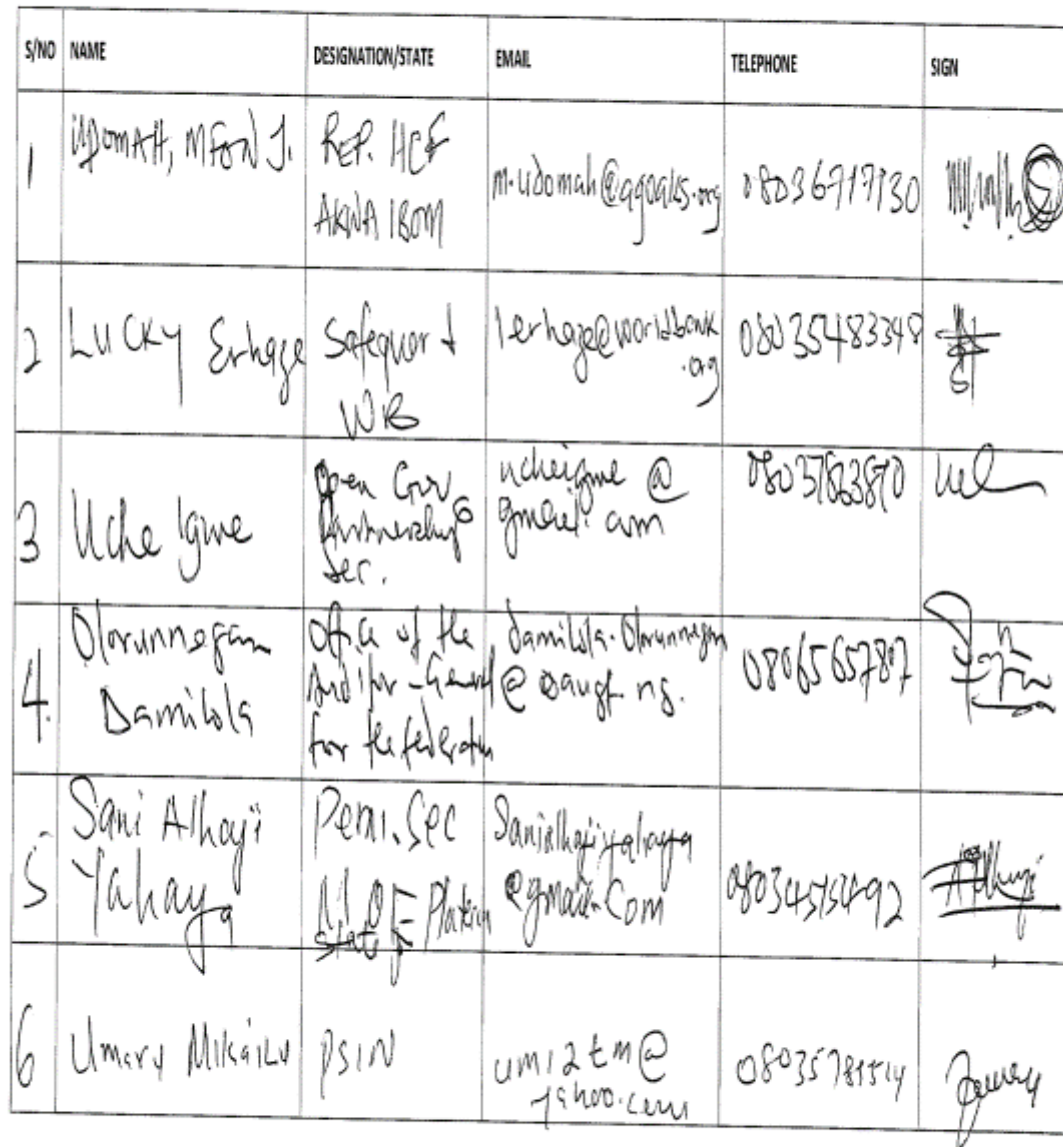 S/NO NAME DESIGNATION/STATE EMAIL TELEPHONE SIGN
1 UDOMAH, MFON J. REP. HCF
AKWA IBOM
m.udomah@agoaks.org 08036717130
2 Lucky Erhaze Safeguard
WB
lerhaze@worldbank
.org
08035483348
3 Uche Igwe Open Gov
Partnership
Sec.
ucheigwe @
gmail.com
08037863870
4. Olorunnegan
Damilola
Office of the
Auditor-General
for the federation
damilola.Olorunnegan
@oaugf.ng.
08065657807
5 Sani Alhaji
Yahaya
Perm. Sec
Plateau
State
Sanialhajiyahaya
@gmail.com
6 Umaru Mikailu PSIN
umi2tm@
yahoo.com